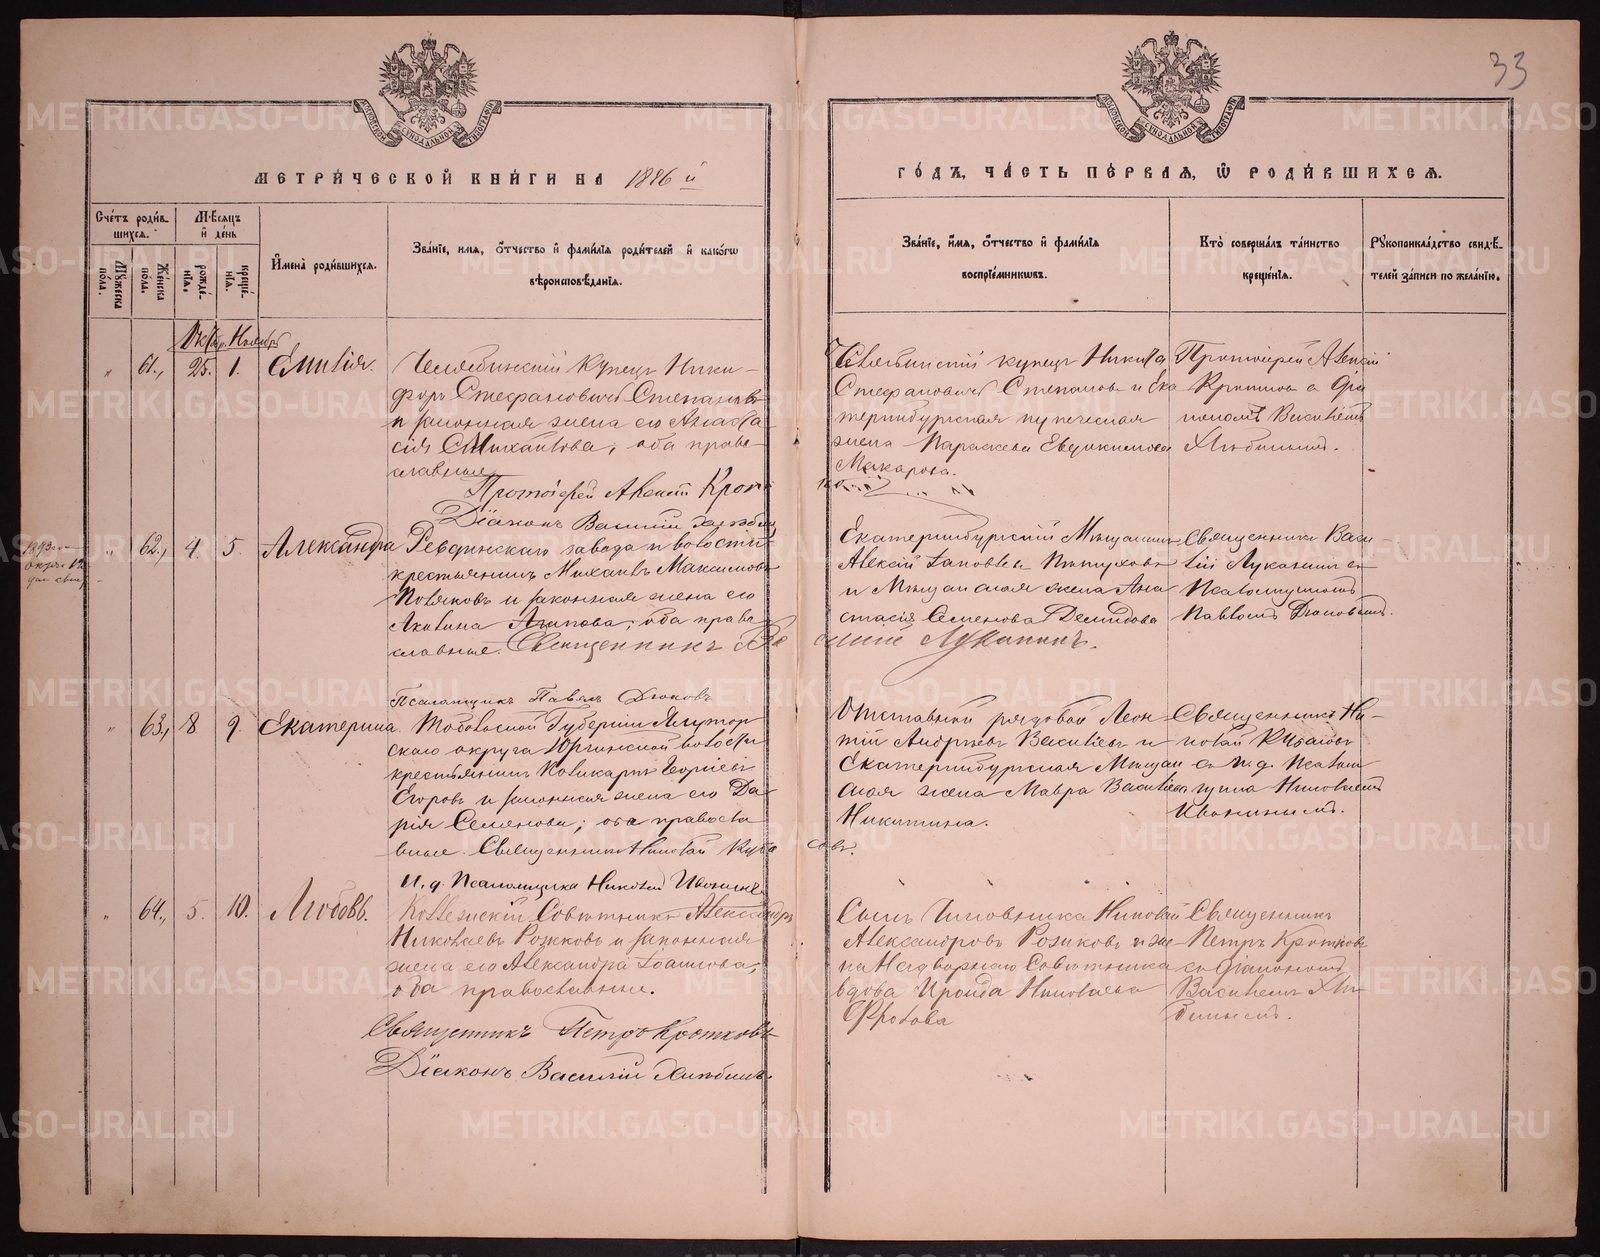 33
МЕТРИ́ЧЕСКОЙ КНИ́ГИ НА 1886 й
ГО́ДЪ, ЧА́СТЬ ПЕ́РВАЯ, Ѿ РОДИ́ВШИХСЯ.
Сче́тъ роди́в-
шихся.
Мѣ́сяцъ
и де́нь
Му́жеска по́ла.
Же́нска по́ла.
рожде́-
нїя.
креще́-
нїя.
И҆мена̀ роди́вшихся.
Зва́нїе, имя, о҆́тчество и҆ фами́лїя роди́телей и҆ како́гѡ
вѣроисповѣ́данїя.
Зва́нїе, и҆́мя, о҆́тчество и҆ фами́лїя
воспрїе́мниковъ.
Кто̀ соверша́лъ та́инство
креще́нїя.
Рꙋкоприкла́дство свидѣ́-
телей за́писи по жела́нїю.
Окт. Ноябрь
" 61., 25. 1. Емилія.
Челябинскій купецъ Ники-
форъ Стефановичъ Степановъ
и законная жена его Анаста
сія Михаилова, оба право-
славные
Протоіерей Алексій
Діаконъ Василій
Челябинскій купецъ Никита
Стефановичъ Степановъ и Ека
теринбургская купеческая
жена Параскева Евдокимова
Макарова.
Протоіерей Алексій
съ діа
кономъ Василіемъ
Хлѣбинымъ.
" 62., 4. 5. Александра
Ревдинскаго завода и волости
крестьянинъ Михаилъ Максимовъ
Поляковъ и законная жена его
Акилина Агапова, оба право-
славные. Священникъ Ва
силій Луканинъ.
Псаломщикъ Павелъ Дюковъ
Екатеринбургскій Мѣщанинъ
Алексій Іаковлевъ Пѣтуховъ
и Мѣщанская жена Ана
стасія Семенова Демидова
Священникъ Васи-
лій Луканинъ съ
Псаломщикомъ
Павломъ Дюковымъ.
" 63., 8 9. Екатерина.
Тобольской Губерніи Ялутор
скаго округа Юргинской волости
крестьянинъ Поликарпъ Георгіевъ
Егоровъ и законная жена его Да
рія Семенова; оба правосла
вные. Священникъ Николай Куба
совъ.
И. д. Псаломщика Николай Ивонинъ
Отставной рядовой Леон
тій Андреевъ Васильевъ и
Екатеринбургская Мѣщан
ская жена Мавра Васильева
Никитина.
Священникъ Ни-
колай Кубасовъ
съ и. д. Псалом
щика Николаемъ
Ивонинымъ.
" 64., 5. 10. Любовь.
Коллежскій Совѣтникъ Александръ
Николаевъ Рожковъ и законная
жена его Александра Іоакимова,
оба православные.
Священникъ Петръ Кротковъ
Діаконъ Василій Хлѣбинъ.
Сынъ Чиновника Николай
Александровъ Рожковъ и же-
на Надворнаго Совѣтника
вдова Ираида Николаева
Фролова
Священникъ
Петръ Кротковъ
съ діакономъ
Василіемъ Хлѣ-
бинымъ.
METRIKI.GASO-URAL.RU